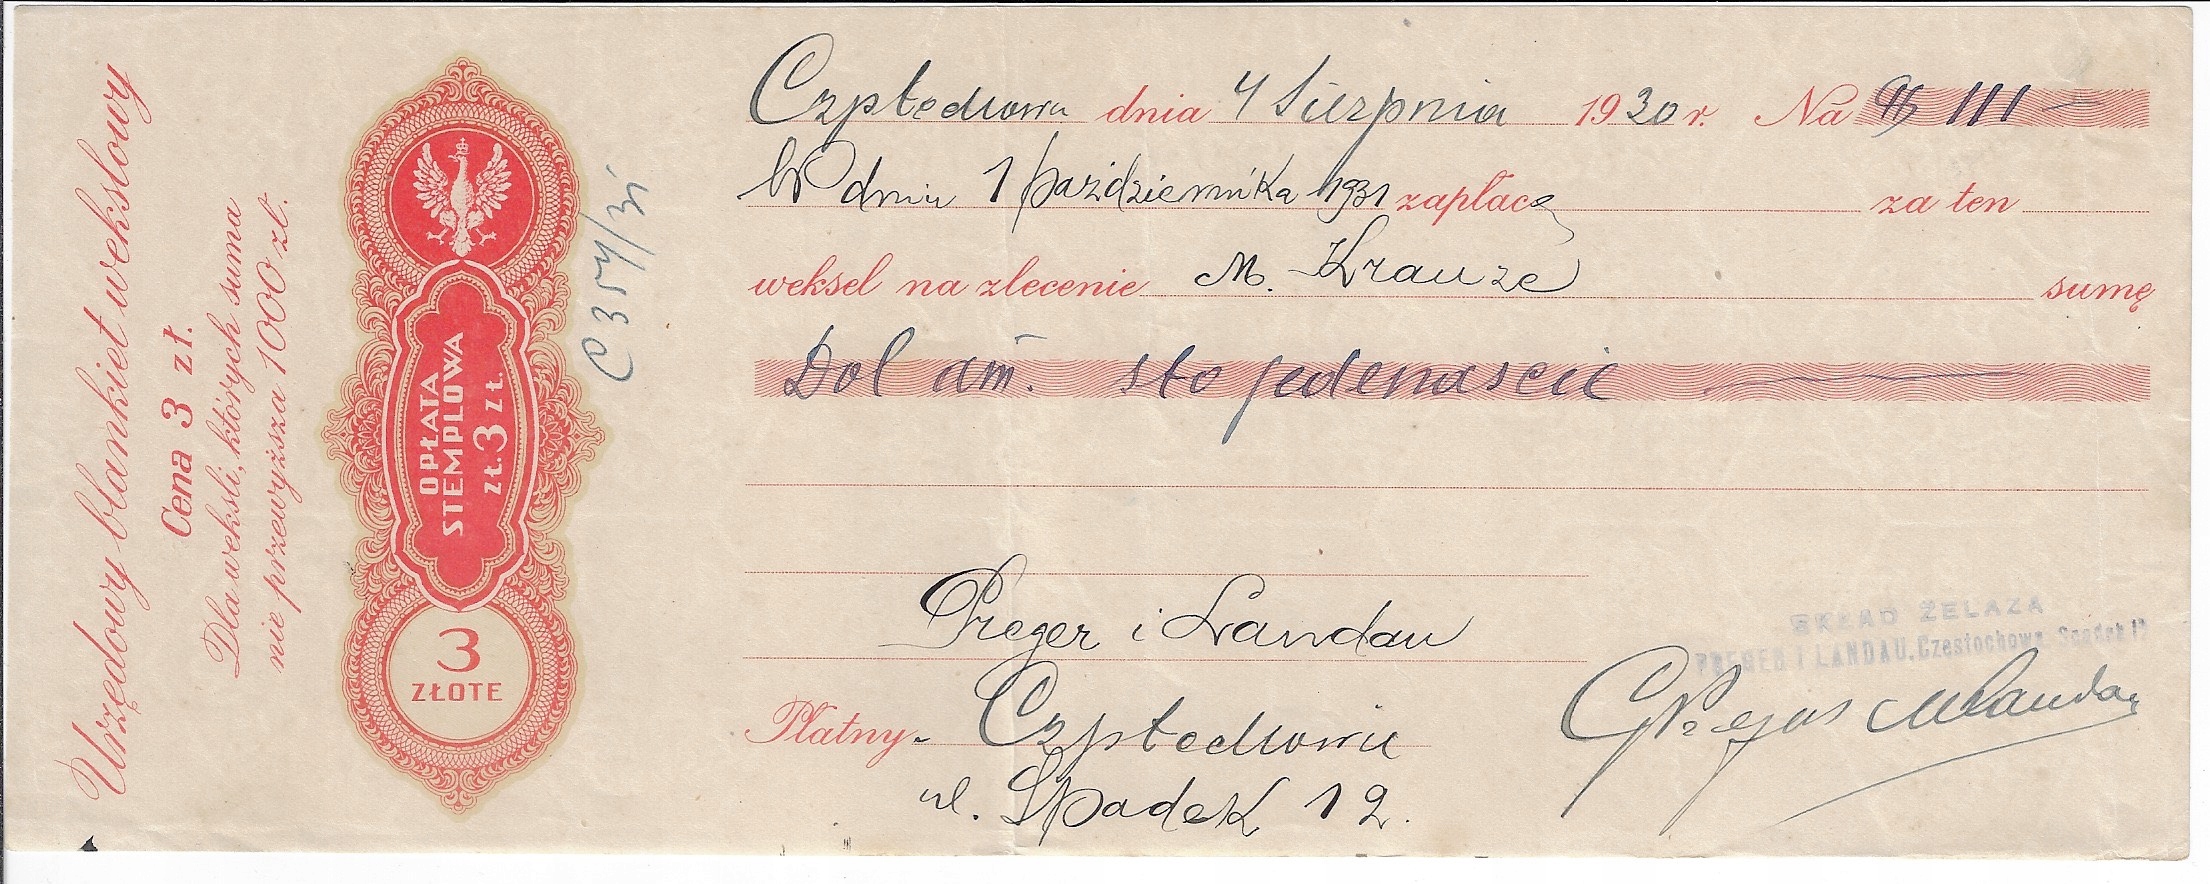 Urzędowy blankiet wekslowy
Cena 3 zł.
Dla weksli, których suma
nie przewyższa 1000 zł.
OPŁATA
STEMPLOWA
ZŁ. 3 ZŁ.
3
ZŁOTE
C 354/31
Częstochowa dnia 4 Sierpnia 1930 r. Na 111 —
W dniu 1 Października 1931 zapłacę za ten
weksel na zlecenie M. Krauze sumę
Dol am. sto jedenascie
Preger i Landau
SKŁAD ŻELAZA
PREGER I LANDAU, Częstochowa, Spadek 12
Płatny - Częstochowie
ul. Spadek 12.